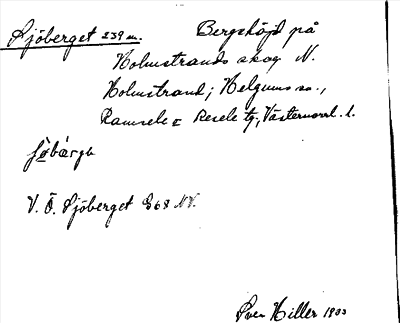 Sjöberget 239 m. Bergshöjd på
Holmstrands skog N.
Holmstrand; Helgums sn.,
Ramsele o Resele tg, Västernorrl. l.
V. Ö. Sjöberget G68 NV.
Sven Hiller 1933